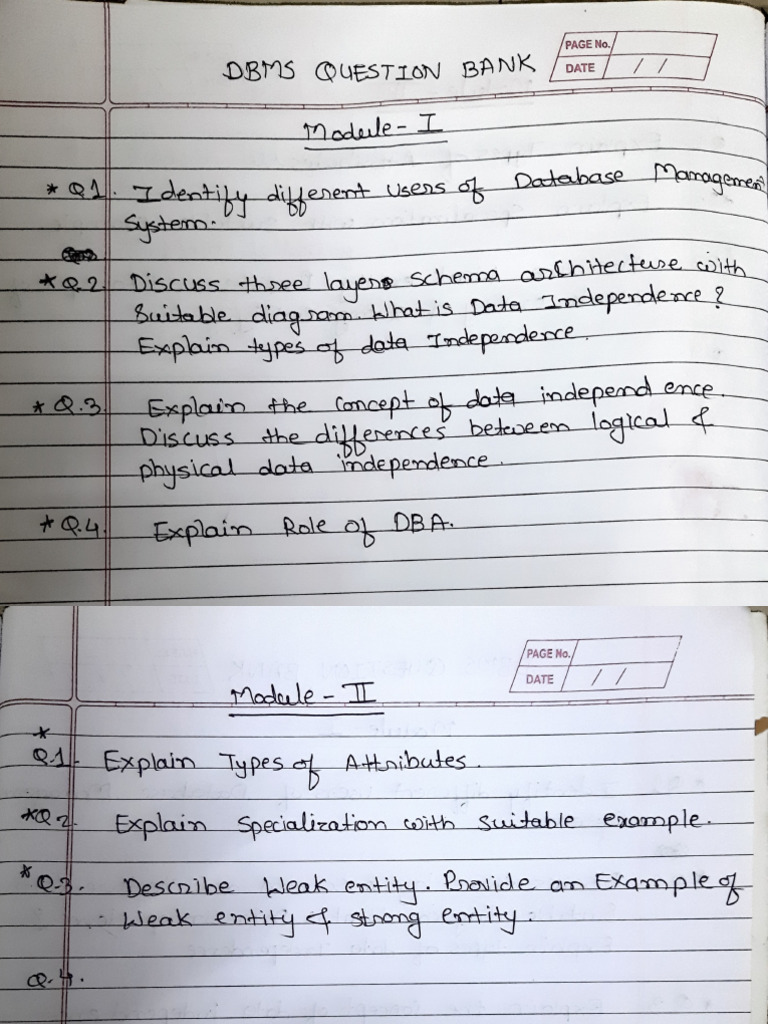 PAGE No.
DATE / /
DBMS QUESTION BANK
Module - I
* Q1. Identify different users of Database Management
System.
* Q.2. Discuss three layers schema architecture with
Suitable diagram. What is Data Independence?
Explain types of data Independence.
* Q.3 Explain the concept of data independence.
Discuss the differences between logical &
physical data independence.
* Q.4. Explain Role of DBA.
PAGE No.
DATE / /
Module - II
*
Q.1. Explain Types of Attributes.
*Q2. Explain Specialization with suitable example.
* Q.3. Describe Weak entity. Provide an Example of
Weak entity & strong entity.
Q.4.